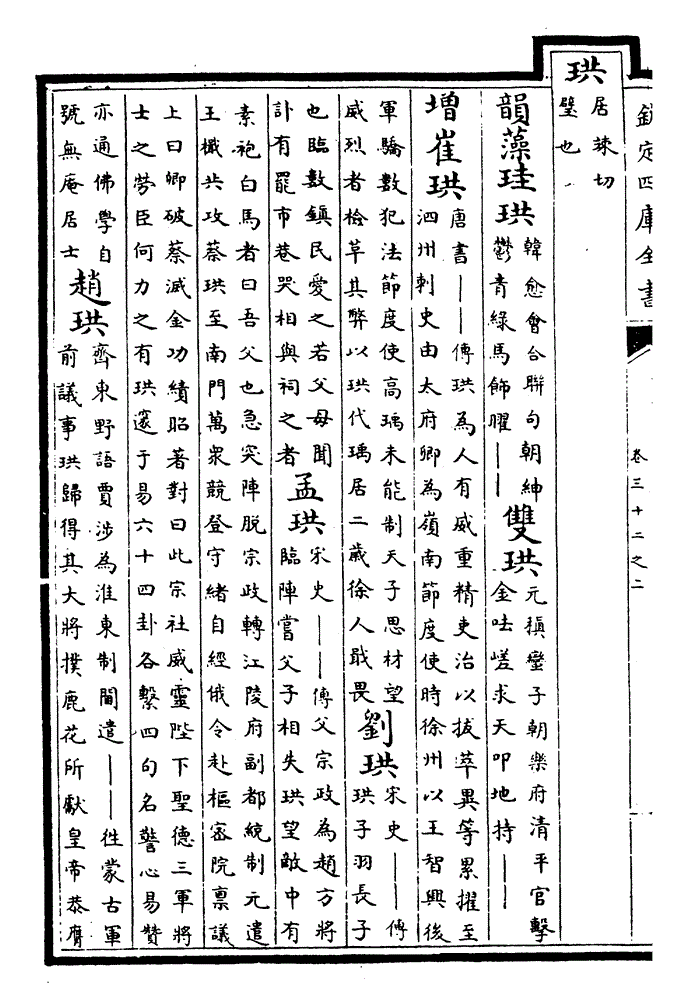 欽定四庫全書
卷三十二之二
珙
居竦切
璧也
韻藻珪珙
韓愈會合聯句朝紳
鬱青綠馬飾曜——
雙珙
元稹蠻子朝樂府清平官擊
金呿嗟求天叩地持——
增崔珙
唐書——傳珙為人有威重精吏治以拔萃異等累擢至
泗州刺史由太府卿為嶺南節度使時徐州以王智興後
軍驕數犯法節度使高瑀未能制天子思材望
威烈者檢革其弊以珙代瑀居二歲徐人戢畏
劉珙
宋史——傳
珙子羽長子
也臨數鎮民愛之若父母聞
訃有罷市巷哭相與祠之者
孟珙
宋史——傳父宗政為趙方將
臨陣嘗父子相失珙望敵中有
素袍白馬者曰吾父也急突陣脫宗政轉江陵府副都統制元遣
王檝共攻蔡珙至南門萬衆競登守緒自經俄令赴樞密院禀議
上曰卿破蔡滅金功績昭著對曰此宗社威靈陛下聖德三軍將
士之勞臣何力之有珙邃于易六十四卦各繫四句名警心易贊
亦通佛學自
號無庵居士
趙珙
齊東野語賈涉為淮東制閫遣——徃蒙古軍
前議事珙歸得其大將撲鹿花所獻皇帝恭膺